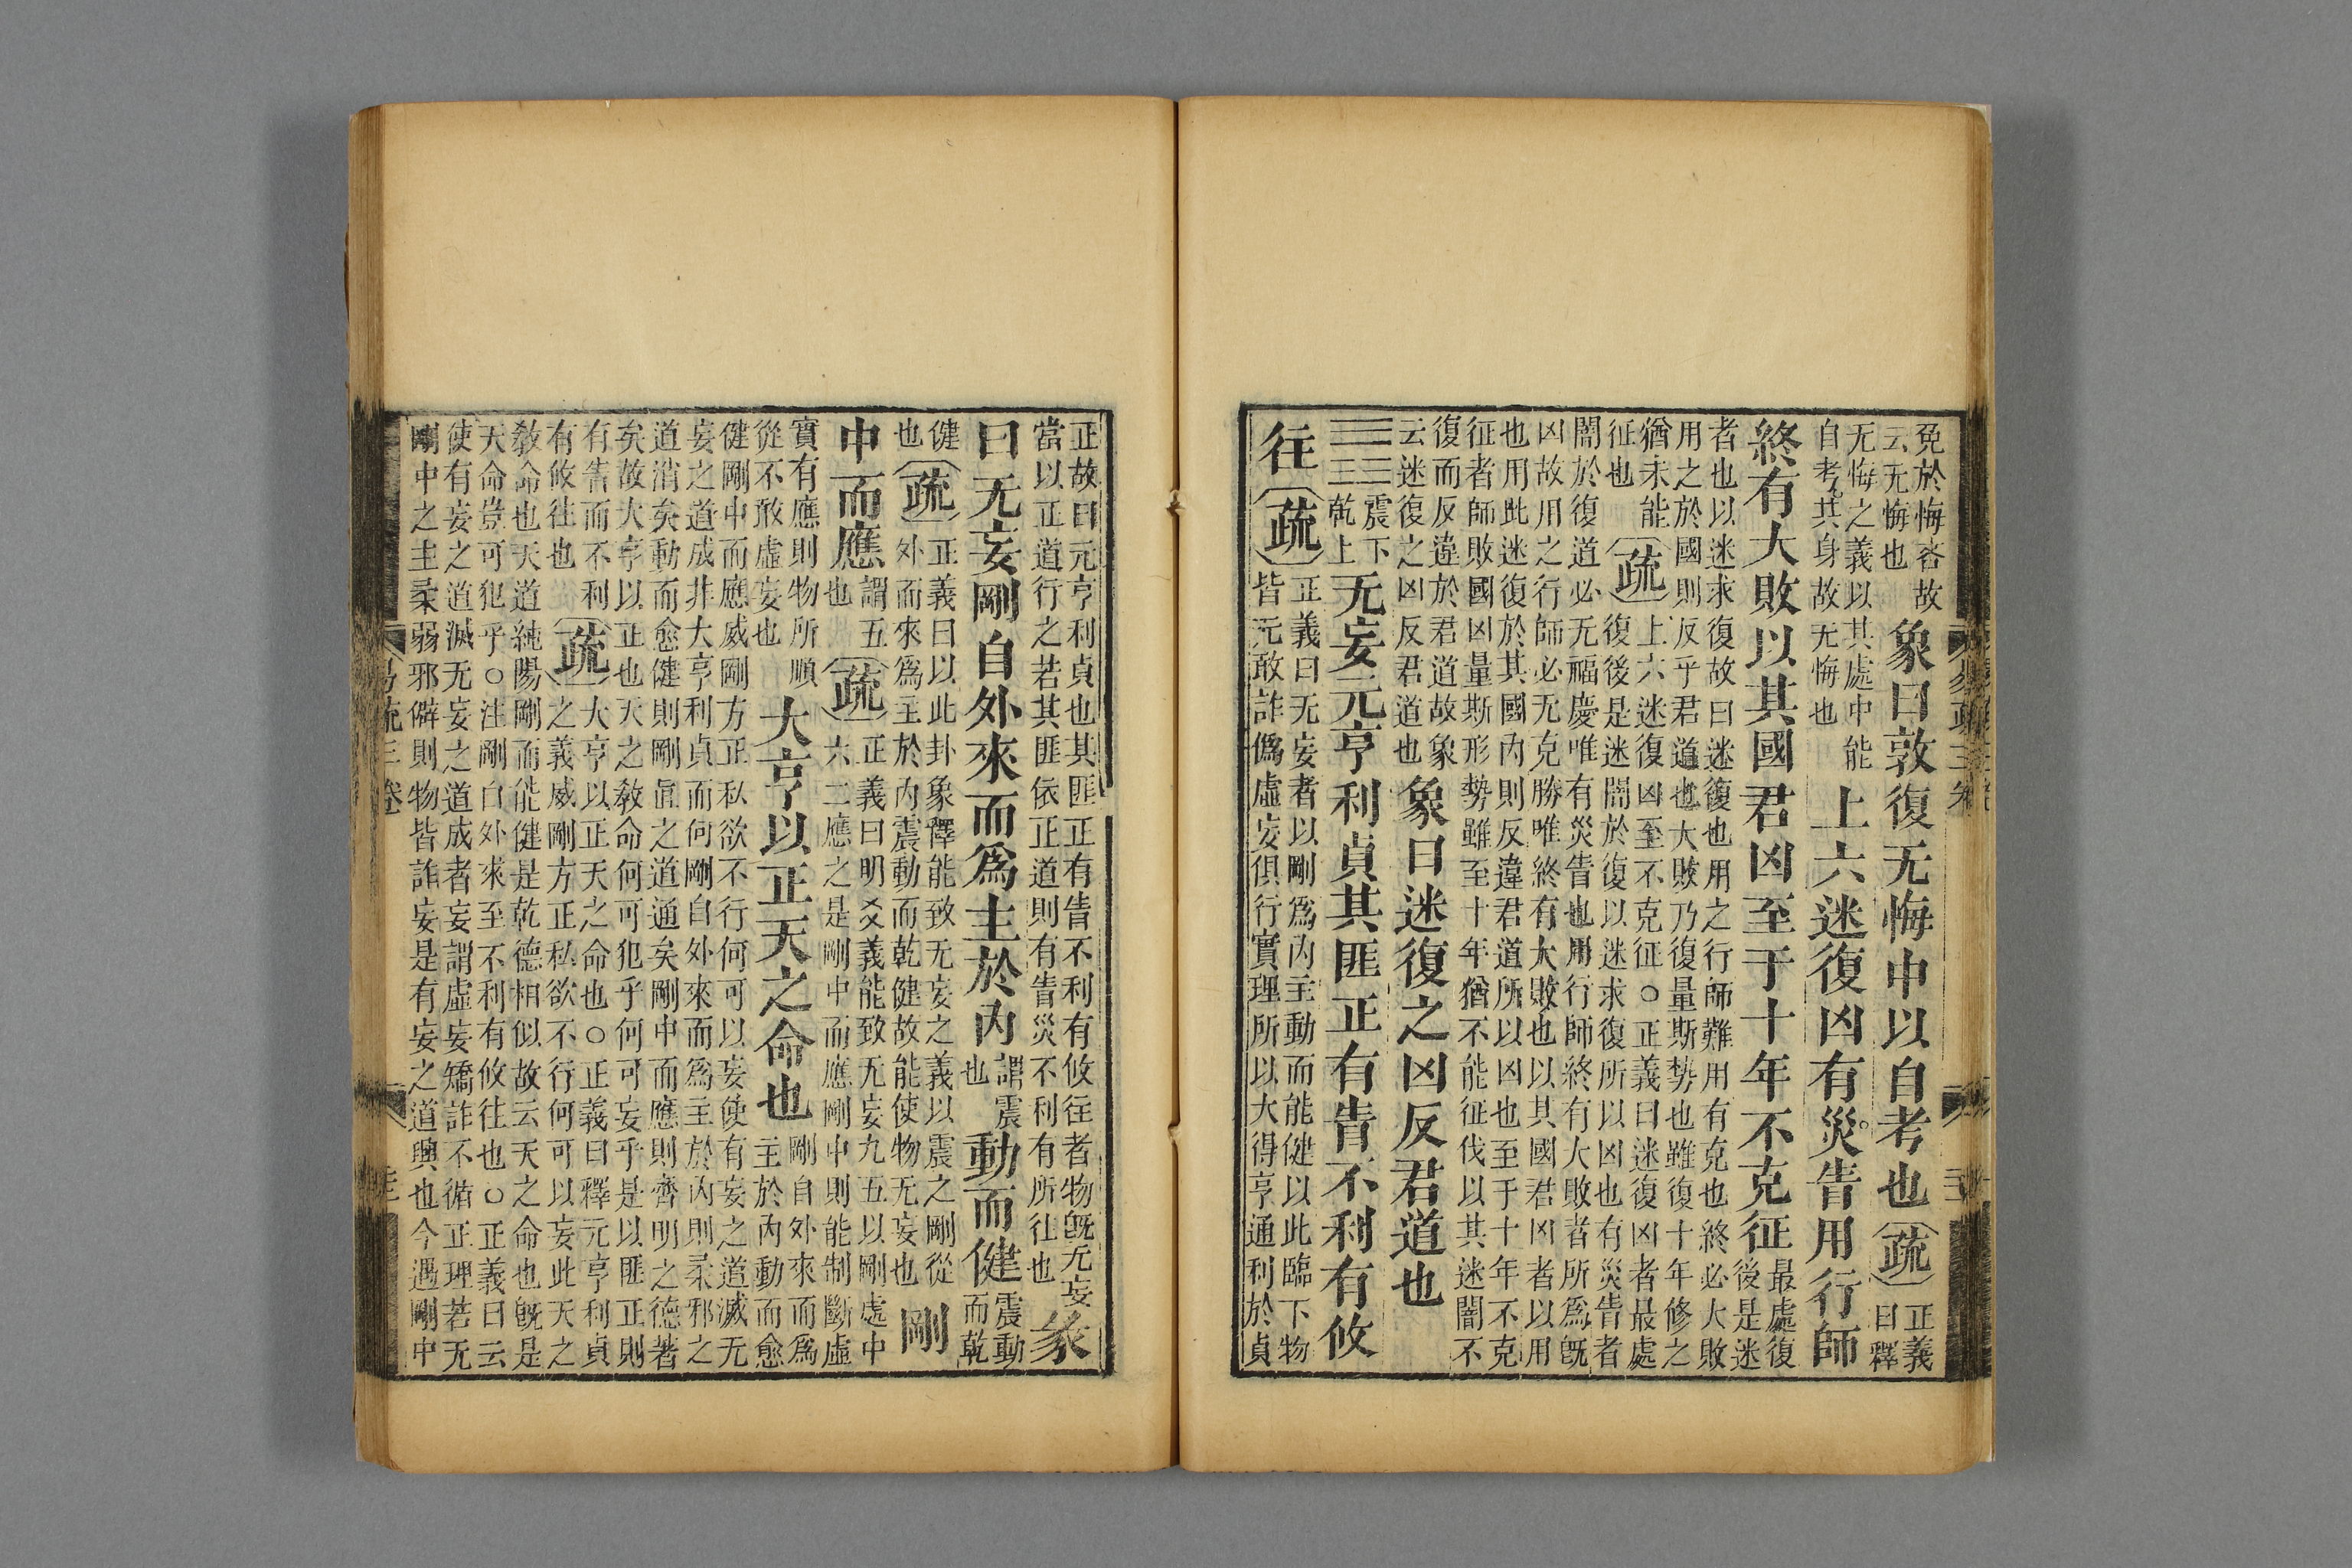 免於悔吝故
云无悔也
象曰敦復无悔中以自考也
疏
正義
曰釋
无悔之義以其處中能
自考其身故无悔也
上六迷復凶有災眚用行師
終有大敗以其國君凶至于十年不克征
最處復
後是迷
者也以迷求復故曰迷復也用之行師難用有克也終必大敗
用之於國則反乎君道也大敗乃復量斯勢也雖復十年修之
猶未能
征也
疏
上六迷復凶至不克征○正義曰迷復凶者最處
復後是迷闇於復以迷求復所以凶也有災眚者
闇於復道必无福慶唯有災眚也用行師終有大敗者所爲旣
凶故用之行師必无克勝唯終有大敗也以其國君凶者以用
也用此迷復於其國內則反違君道所以凶也至于十年不克
征者師敗國凶量斯形勢雖至十年猶不能征伐以其迷闇不
復而反違於君道故象
云迷復之凶反君道也
象曰迷復之凶反君道也
震下
乾上
无妄元亨利貞其匪正有眚不利有攸
往
疏
正義曰无妄者以剛爲內主動而能健以此臨下物
皆无敢詐僞虛妄俱行實理所以大得亨通利於貞
正故曰元亨利貞也其匪正有眚不利有攸往者物旣无妄
當以正道行之若其匪依正道則有眚災不利有所往也
彖
曰无妄剛自外來而爲主於內
謂震
也
動而健
震動
而乾
健
也
疏
正義曰以此卦象釋能致无妄之義以震之剛從
外而來爲主於內震動而乾健故能使物无妄也
剛
中而應
謂五
也
疏
正義曰明爻義能致无妄九五以剛處中
六二應之是剛中而應剛中則能制斷虛
實有應則物所順
從不敢虛妄也
大亨以正天之命也
剛自外來而爲
主於內動而愈
健剛中而應威剛方正私欲不行何可以妄使有妄之道滅无
妄之道成非大亨利貞而何剛自外來而爲主於內則柔邪之
道消矣動而愈健則剛直之道通矣剛中而應則齊明之德著
矣故大亨以正也天之敎命何可犯乎何可妄乎是以匪正則
有眚而不利
有攸往也
疏
大亨以正天之命也○正義曰釋元亨利貞
之義威剛方正私欲不行何可以妄此天之
敎命也天道純陽剛而能健是乾德相似故云天之命也旣是
天命豈可犯乎○注剛自外來至不利有攸往也○正義曰云
使有妄之道滅无妄之道成者妄謂虛妄矯詐不循正理若无
剛中之主柔弱邪僻則物皆詐妄是有妄之道興也今遇剛中
易疏三卷